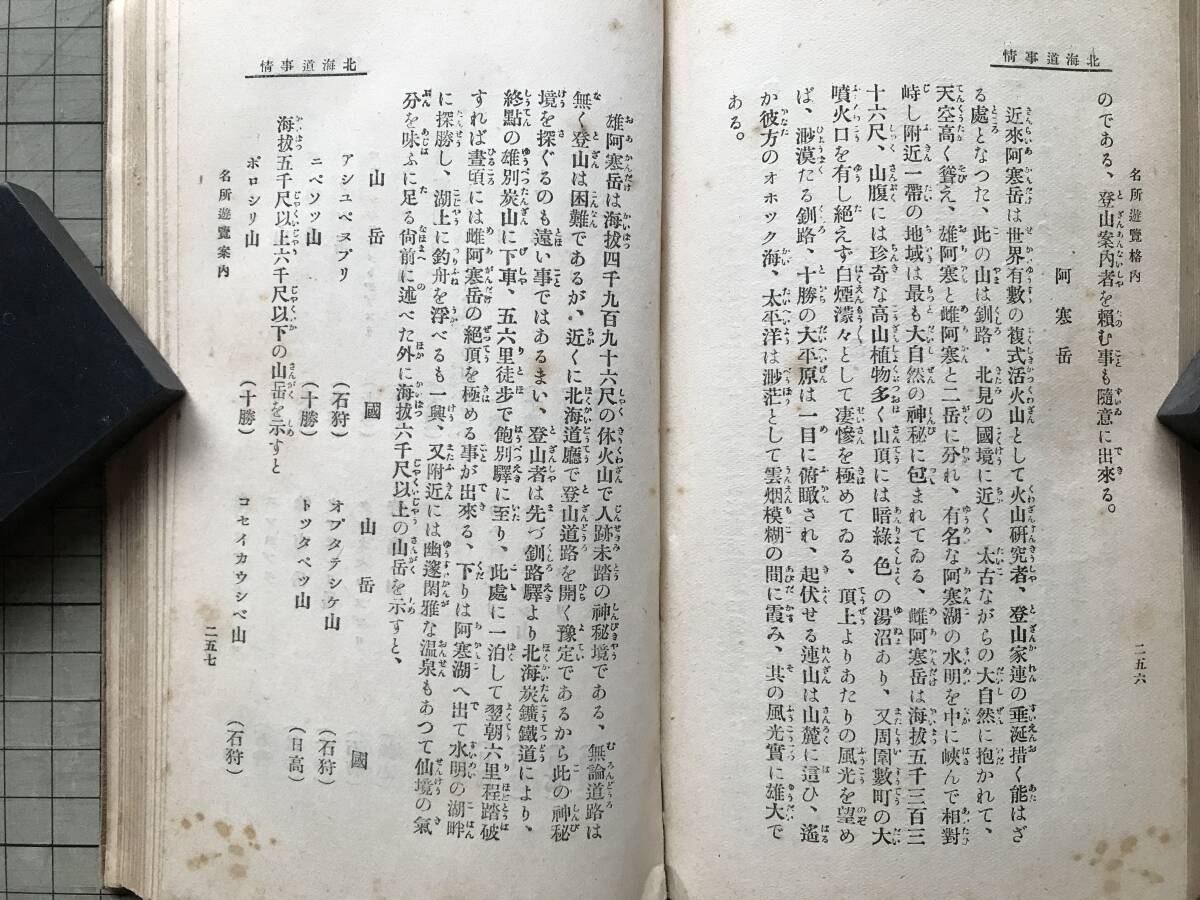 北海道事情
名所遊覽格内
二五六
のである、登山案內者を賴む事も隨意に出來る。
阿寒岳
近來阿寒岳は世界有數の複式活火山として火山研究者、登山家連の垂涎措く能はざ
る處となつた、此の山は釧路、北見の國境に近く、太古ながらの大自然に抱かれて、
天空高く聳え、雄阿寒と雌阿寒と二岳に分れ、有名な阿寒湖の水明を中に峽んで相對
峙し附近一帶の地域は最も大自然の神秘に包まれてゐる、雌阿寒岳は海拔五千三百三
十六尺、山腹には珍奇な高山植物多く山頂には暗綠色の湯沼あり、又周圍數町の大
噴火口を有し絕えず白煙濛々として凄慘を極めてゐる、頂上よりあたりの風光を望め
ば、渺漠たる釧路、十勝の大平原は一目に俯瞰され、起伏せる連山は山麓に這ひ、遙
か彼方のオホツク海、太平洋は渺茫として雲烟模糊の間に霞み、其の風光實に雄大で
ある。
北海道事情
雄阿寒岳は海拔四千九百九十六尺の休火山で人跡未踏の神秘境である、無論道路は
無く登山は困難であるが、近くに北海道廳で登山道路を開く豫定であるから此の神秘
境を探ぐるのも遠い事ではあるまい、登山者は先づ釧路驛より北海炭鑛鐵道により、
終點の雄別炭山に下車、五六里徒步で飽別驛に至り、此處に一泊して翌朝六里程踏破
すれば晝頃には雌阿寒岳の絕頂を極める事が出來る、下りは阿寒湖へ出て水明の湖畔
に探勝し、湖上に釣舟を浮べるも一興、又附近には幽邃閑雅な溫泉もあつて仙境の氣
分を味ふに足る尙前に述べた外に海拔六千尺以上の山岳を示すと、
山岳 國 山岳 國
アシュペヌプリ (石狩) オプタテシケ山 (石狩)
ニペソツ山 (十勝) トツタベツ山 (日高)
海拔五千尺以上六千尺以下の山岳を示すと
ポロシリ山 (十勝) コセイカウシベ山 (石狩)
名所遊覽案內
二五七